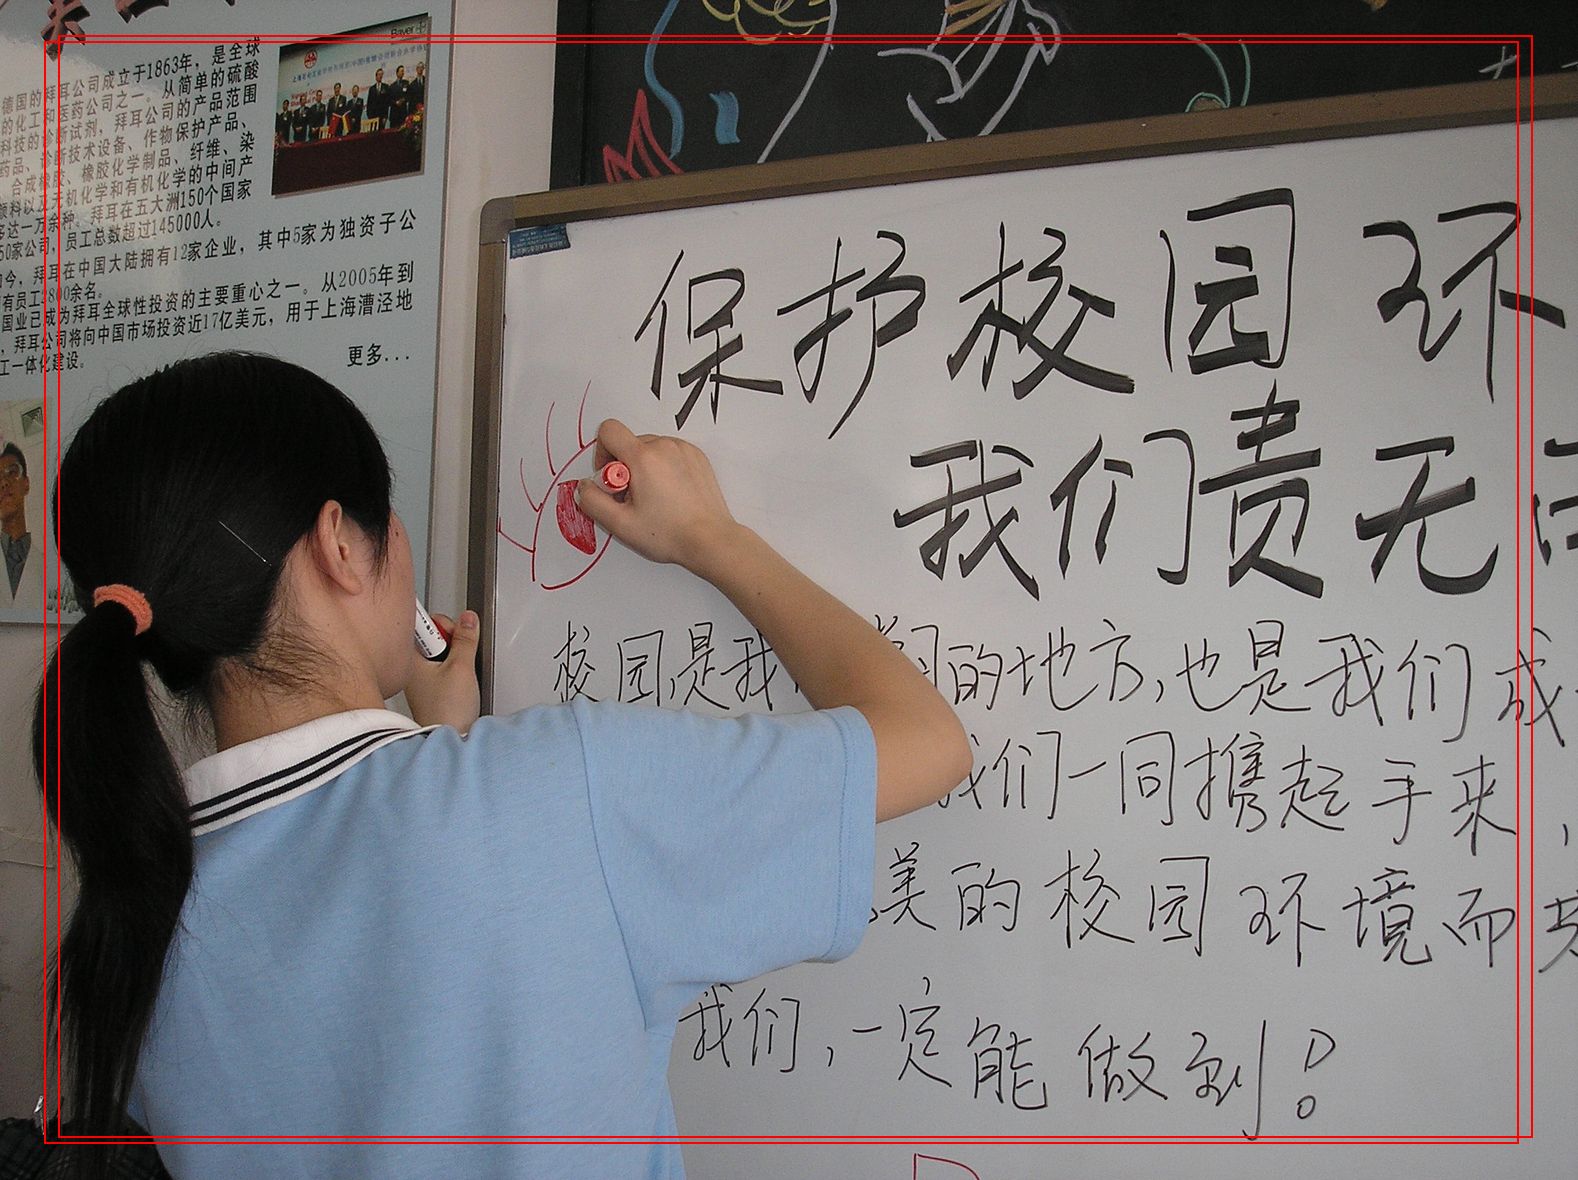 Bayer
德国的拜耳公司成立于1863年，是全球
的化工和医药公司之一。从简单的硫酸
科技的诊断试剂，拜耳公司的产品范围
药品、诊断技术设备、作物保护产品、
合成橡胶、橡胶化学制品、纤维、染
颜料以及无机化学和有机化学的中间产
多达一万余种。拜耳在五大洲150个国家
50家公司，员工总数超过145000人。
如今，拜耳在中国大陆拥有12家企业，其中5家为独资子公
有员工4800余名。
国业已成为拜耳全球性投资的主要重心之一。从2005年到
，拜耳公司将向中国市场投资近17亿美元，用于上海漕泾地
工一体化建设。
更多...
保护校园环
我们责无
校园,是我 的地方,也是我们成
我们一同携起手来,
美的校园环境而
我们,一定能做到!